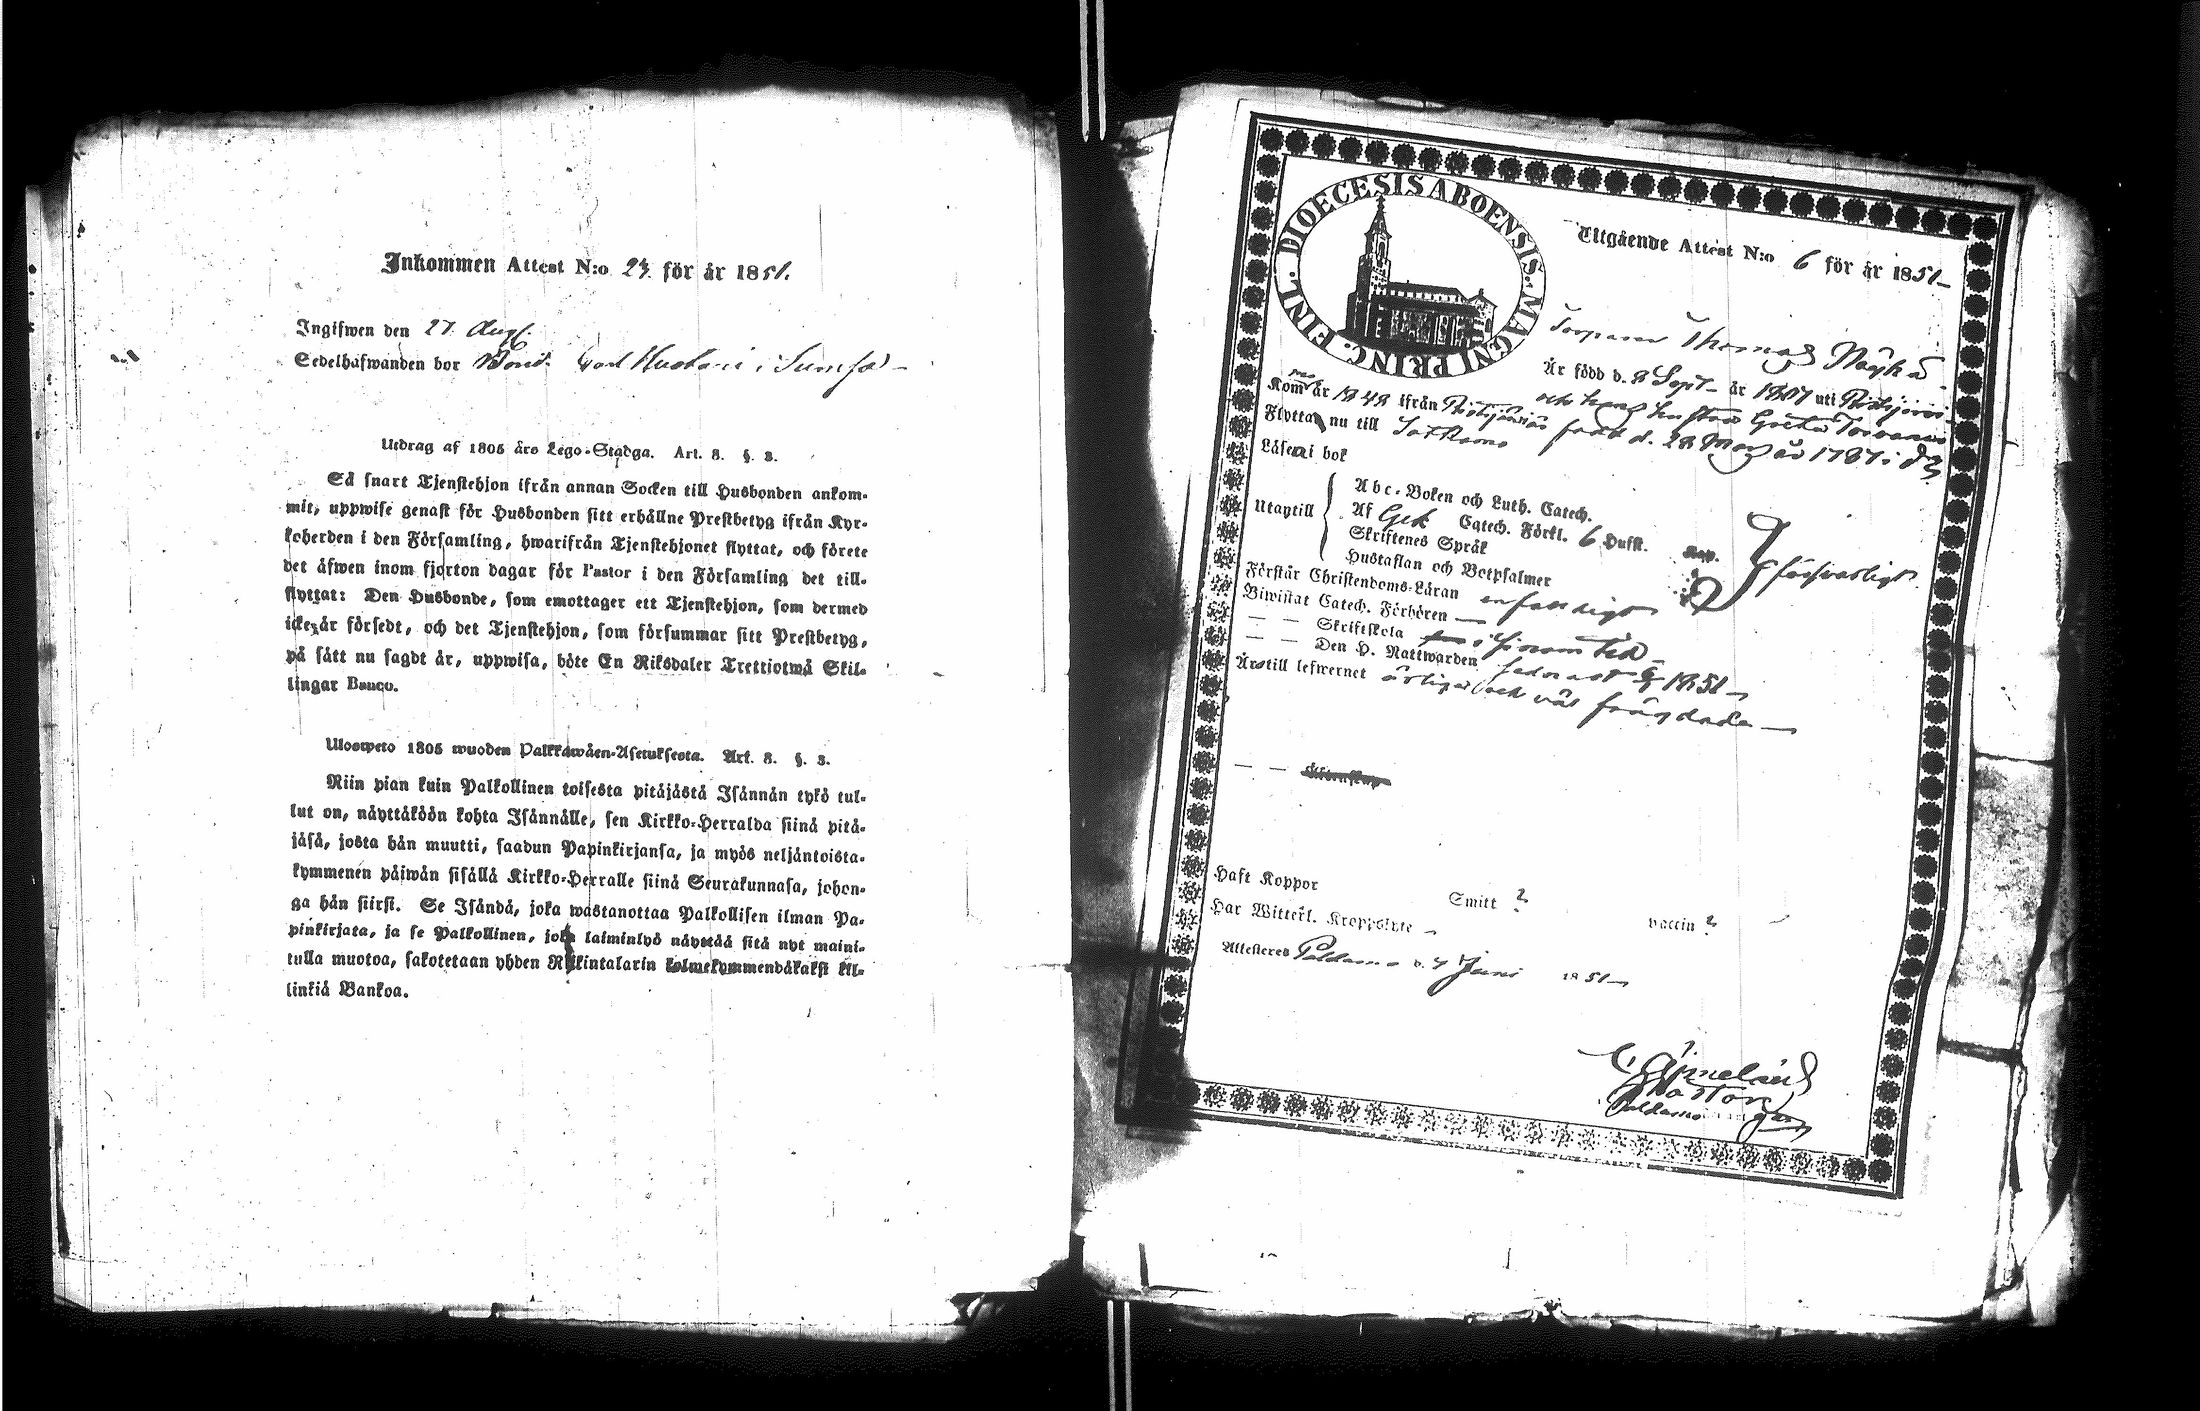 Inkommen Attest N:o 23 för år 1851.
Ingifwen den 27 Aug.
Sedelhafwanden bor
Utdrag af 1805 års Lego-Stadga. Art. 8. §. 3.
Så snart Tjenstehjon ifrån annan Socken till Husbonden ankom-
mit, uppwise genast för Husbonden sitt erhållne Prestbetyg ifrån Kyr-
koherden i den Församling, hwarifrån Tjenstehjonet flyttat, och förete
det äfwen inom fjorton dagar för Pastor i den Församling det till-
flyttat: Den Husbonde, som emottager ett Tjenstehjon, som dermed
icke är försedt, och det Tjenstehjon, som försummar sitt Prestbetyg,
på sätt nu sagdt är, uppwisa, böte En Riksdaler Trettiotwå Skil-
lingar Banco.
Ulosweto 1805 wuoden Palkkawäen-Asetuksesta. Art. 8. §. 3.
Niin pian kuin Palkollinen toisesta pitäjästä Isännän tykö tul-
lut on, näyttäköön kohta Isännälle, sen Kirkko-Herralda siinä pitä-
jäsä, josta hän muutti, saadun Papinkirjansa, ja myös neljäntoista-
kymmenen päiwän sisällä Kirkko-Herralle siinä Seurakunnasa, johon-
ga hän siirsi. Se Isändä, joka wastanottaa Palkollisen ilman Pa-
pinkirjata, ja se Palkollinen, joka laiminlyö näyttää sitä nyt maini-
tulla muotoa, sakotetaan yhden Riikintalarin kolmekymmendäkaksi kil-
linkiä Bankoa.
DIOECESIS ABOENSIS. MAGNI PRINC. FINL.
Utgående Attest N:o 6 för år 1851
Torparen Thomas
Är född d. 8 Sept. år 1807 uti Ristijärvi
och hans hustru Greta
Kom år 1848 ifrån Ristijärvi född d. 28 Maj år 1787 i
Flytta nu till Sotkamo
Läsa i bok
Utantill
Abc-Boken och Luth. Catech.
Af Catech. Förkl. 6 Hufst. Kap.
Skriftenes Språk
Hustaflan och Botpsalmer
försvarligt
Förstår Christendoms-Läran enfaldigt
Biwistat Catech. Förhören
— — Skriftskola i sinom tid
— — Den H. Nattwarden sednast 1851
Årstill lefwernet ärliga och väl frägdade
Haft Koppor Smitt ? vaccin ?
Har Witterl. Kroppslyte —
Attesteres Paldamo d. 4 Juni 1851
Pastor
Paldamo